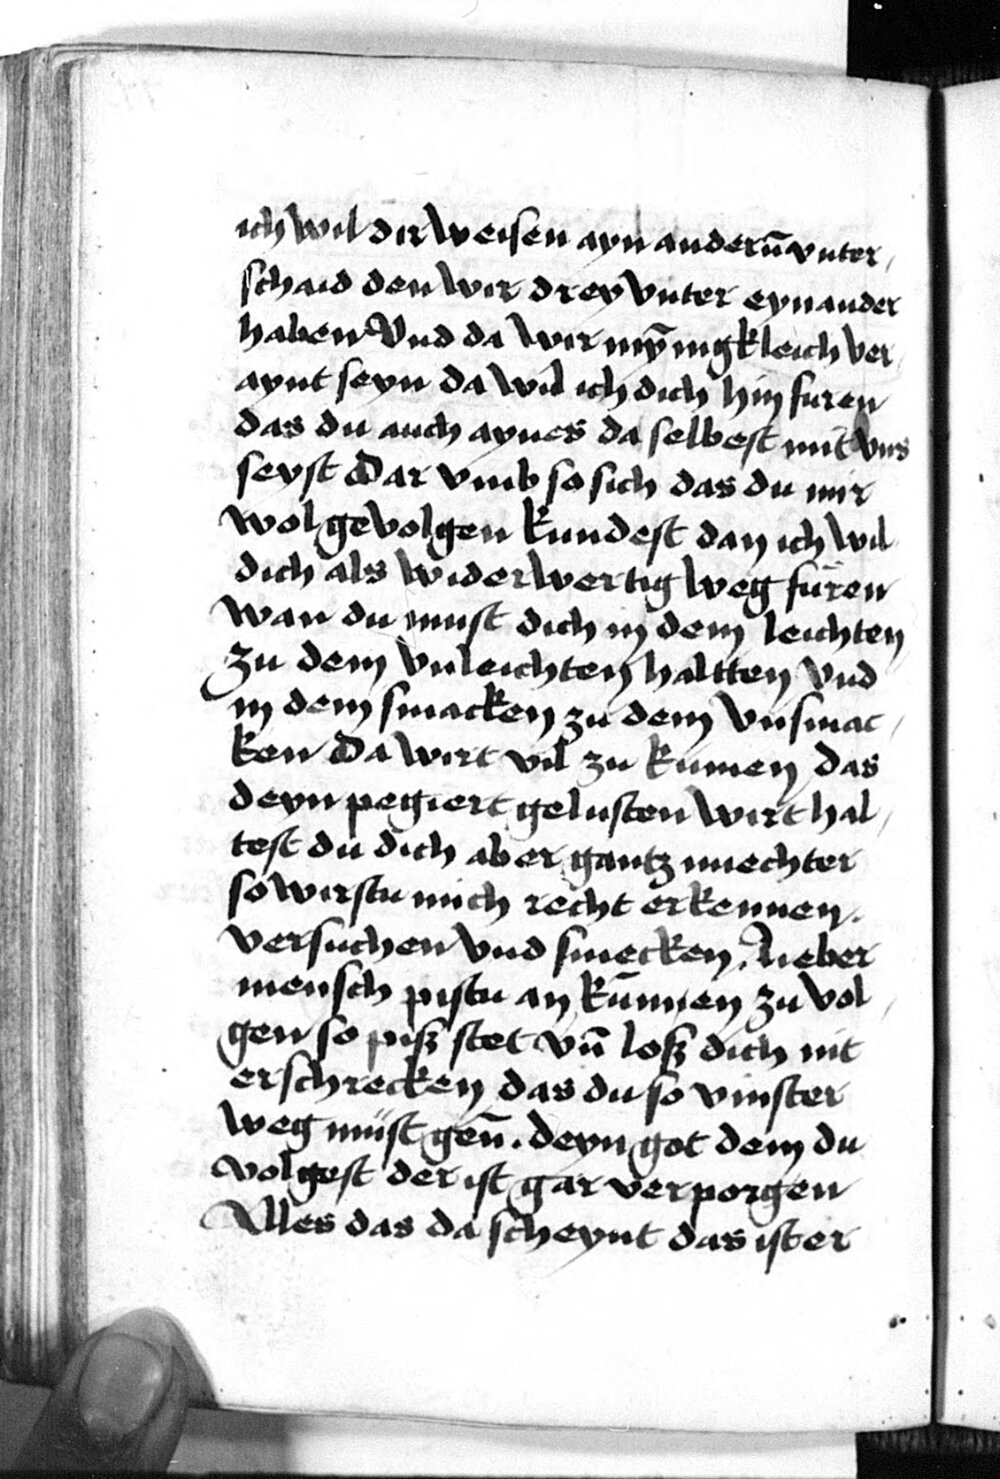 ich wil dir weisen ayn anderū vnter,
schaid den wir drey vnter eynander
haben Vnd da wir myn̄igkleich ver,
aynt seyn da wil ich dich hin furen
das du auch aynes da selbest mit vns
seyst Dar vmb so sich das du mir
wol gevolgen kundest dan ich wil
dich als widerwertig weg füren
wan du must dich in dem leichten
zu dem vnleichten haltten vnd
in dem smacken zu dem vnsmac,
ken Da wirt vil zu kumen das
deyn pegiert gelusten wirt hal,
test du dich aber gantz nuechter
so wirstu mich recht erkennen.
versuchen vnd smecken. Lieber
mensch pistu an kūmen zu vol,
gen so piß stet vn̄ loß dich nit
erschrecken das du so vinster
weg müst gen̄. deyn got dem du
volgest der ist gar verporgen
Alles das da scheynt das ist er